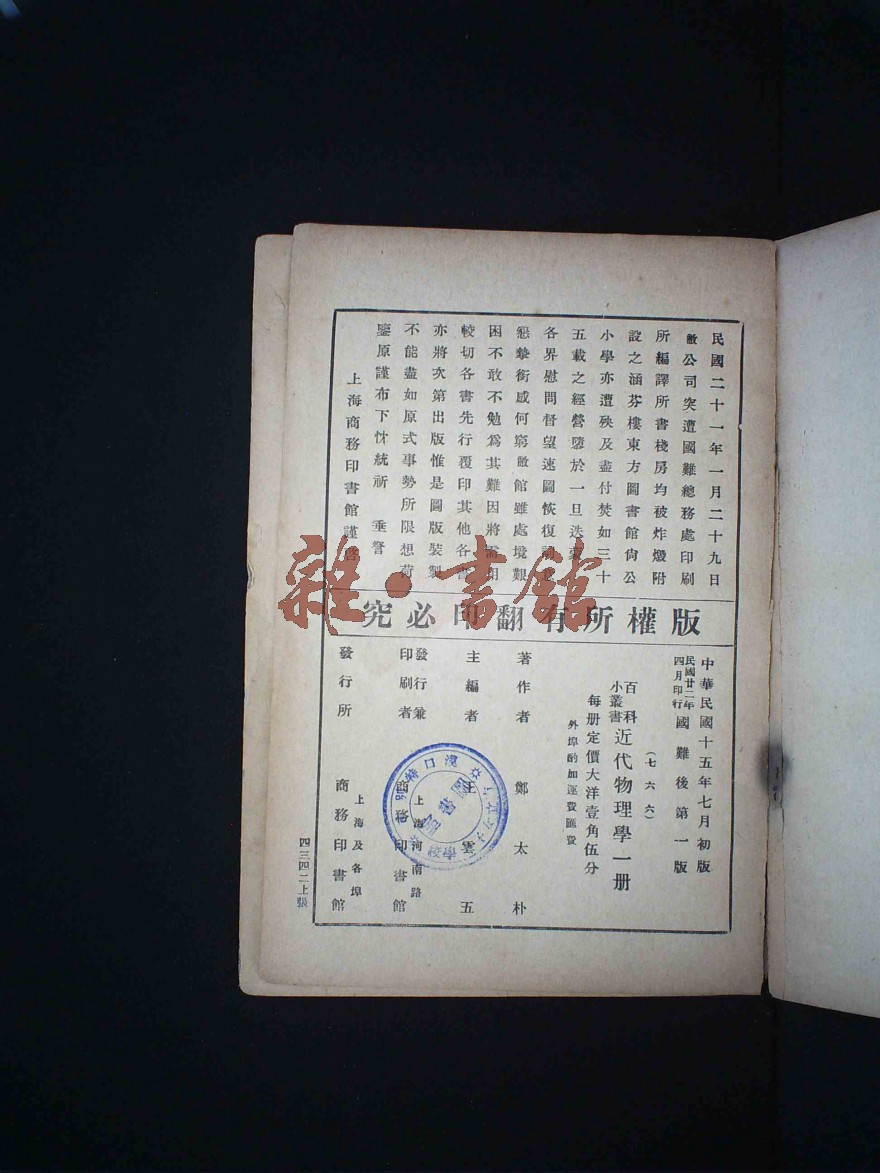 民國二十一年一月二十九日
敝公司突遭國難總務處印刷
所編譯所書棧房均被炸燬附
設之涵芬樓東方圖書館尙公
小學亦遭殃及盡付焚如三十
五載之經營隳於一旦迭蒙
各界慰問督望速圖恢復
懇摯銜感何窮敝館雖處境艱
困不敢不勉爲其難因將需用
較切各書先行覆印其他各書
亦將次第出版惟是圖版裝製
不能盡如原式事勢所限想荷
鑒原謹布下忱統祈 垂詧
上海商務印書館謹啓
版權所有翻印必究
中華民國十五年七月初版
民國廿二年四月印行 國難後第一版
(七六六)
百科小叢書 近代物理學一册
每册定價大洋壹角伍分
外埠酌加運費匯費
著作者 鄭太朴
主編者 王雲五
發行兼印刷者 上海河南路 商務印書館
發行所 上海及各埠 商務印書館
四三四二上 張
雜·書館